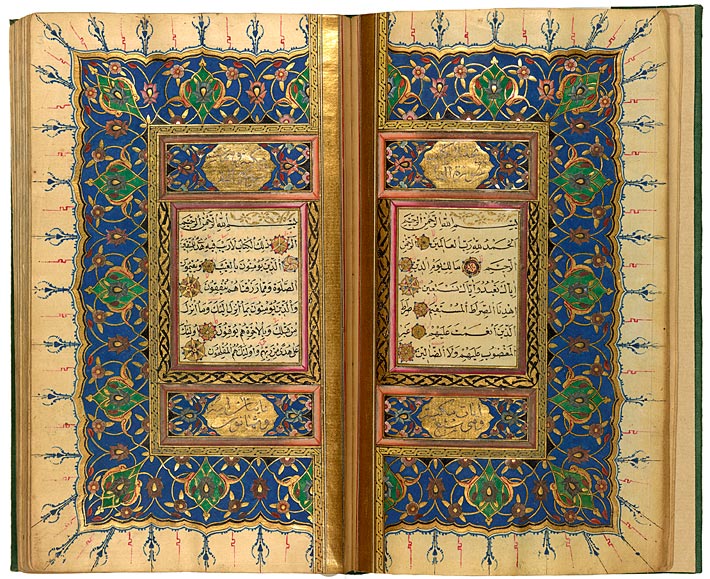 بسم الله الرحمن الرحيم
الحمد لله رب العالمين الرحمن
الرحيم مالك يوم الدين
اياك نعبد واياك نستعين
اهدنا الصراط المستقيم صراط
الذين انعمت عليهم غير
المغضوب عليهم ولا الضالين
بسم الله الرحمن الرحيم
الم ذلك الكتاب لا ريب فيه هدى للمتقين
الذين يؤمنون بالغيب ويقيمون
الصلوة ومما رزقناهم ينفقون
والذين يؤمنون بما انزل اليك وما انزل
من قبلك وبالاخرة هم يوقنون اولئك
على هدى من ربهم واولئك هم المفلحون